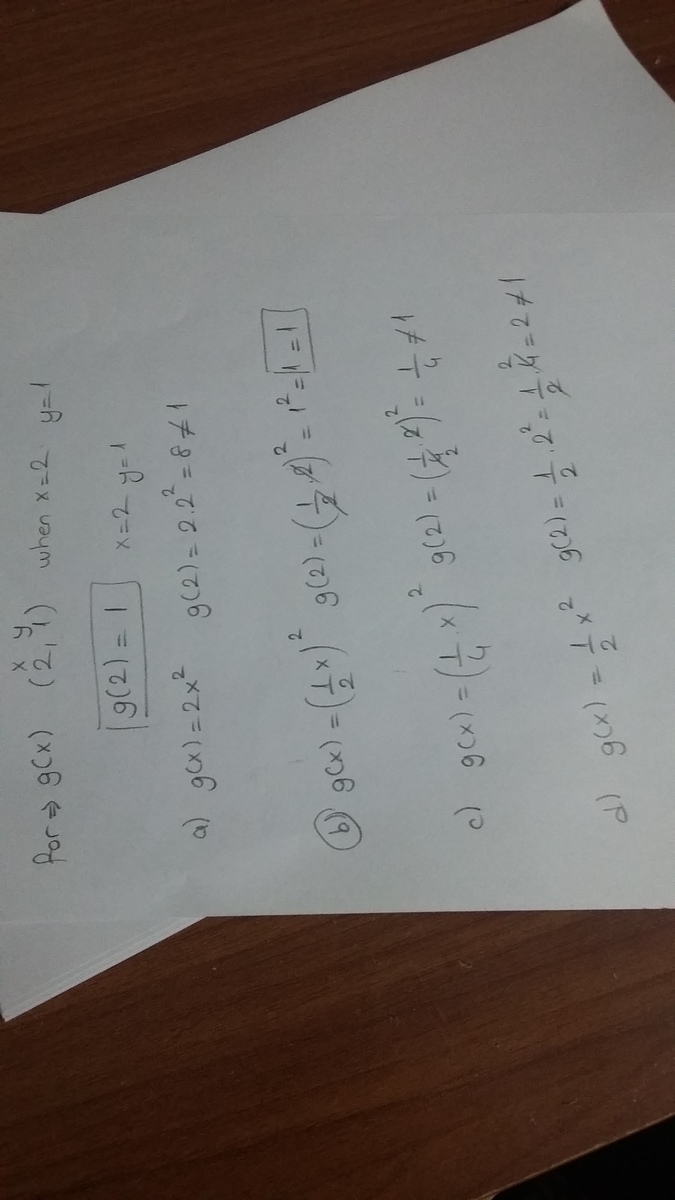 for ⇒ g(x) (2, 1) when x=2 y=1
x y
g(2) = 1 x=2 y=1
a) g(x) = 2x² g(2) = 2.2² = 8 ≠ 1
b) g(x) = (1/2 x)² g(2) = (1/2 . 2)² = 1² = 1 = 1
c) g(x) = (1/4 . x)² g(2) = (1/4 . 2)² = 1/4 ≠ 1
2
d) g(x) = 1/2 x² g(2) = 1/2 . 2² = 1/2 . 4 = 2 ≠ 1
2